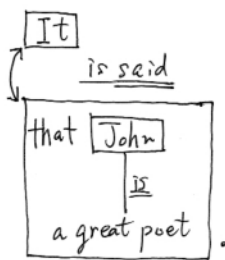 It
is said
that John
is
a great poet.